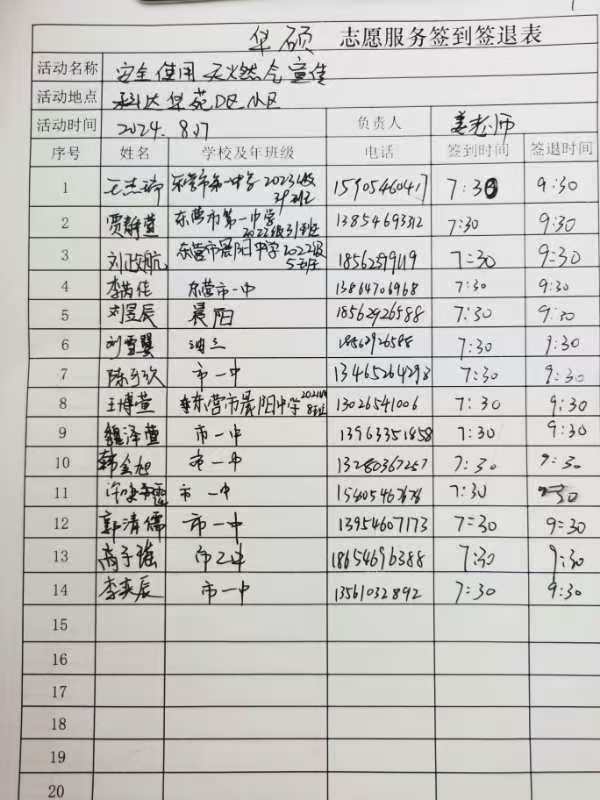 华硕 志愿服务签到签退表
活动名称 安全使用天燃气宣传
活动地点 科达华苑D区小区
活动时间 2024.8.17 负责人 姜老师
序号 姓名 学校及年班级 电话 签到时间 签退时间
1 王杰瑞 东营市第一中学2023级 31班 15905460417 7:30 9:30
2 贾静萱 东营市第一中学 2022级31班 13854693312 7:30 9:30
3 刘政航 东营市晨阳中学2022级 5班 18562899119 7:30 9:30
4 李芮佳 东营市一中 13864706968 7:30 9:30
5 刘昱辰 晨阳 18562926588 7:30 9:30
6 刘雪婴 油三 18562926588 7:30 9:30
7 陈 市一中 13465264293 7:30 9:30
8 王博萱 东营市晨阳中学 8班 13026541006 7:30 9:30
9 魏泽萱 市一中 13963351858 7:30 9:30
10 韩金旭 市一中 13280367257 7:30 9:30
11 市一中 7:30 9:30
12 郭清儒 市一中 13954607173 7:30 9:30
13 高子 市二中 18654696388 7:30 9:30
14 李奕辰 市一中 13561032892 7:30 9:30
15
16
17
18
19
20